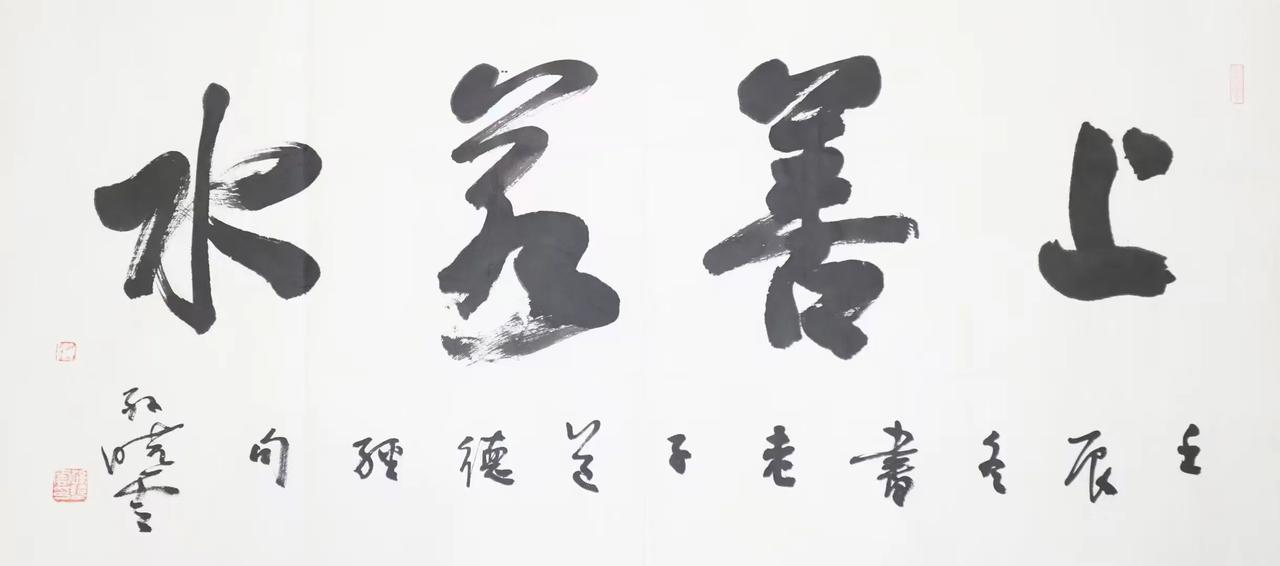 上善若水
壬辰冬書老子道德經句
孫曉雲